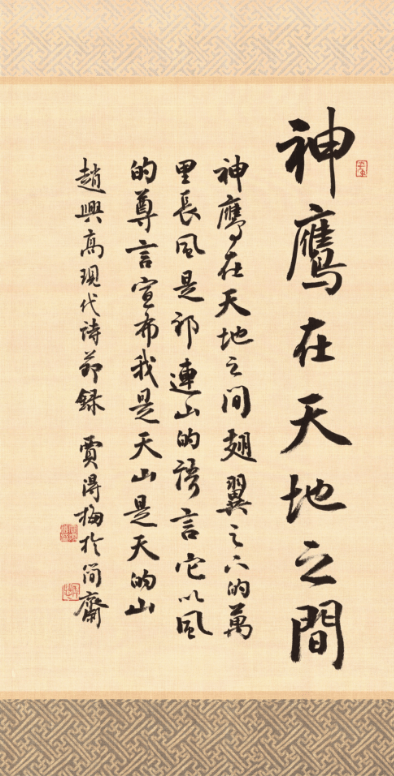 神鷹在天地之間
神鷹在天地之間翅翼之下的萬
里長風是祁連山的語言它以風
的尊言宣布我是天山是天的山
趙興高現代詩節錄 賈得梅於簡齋